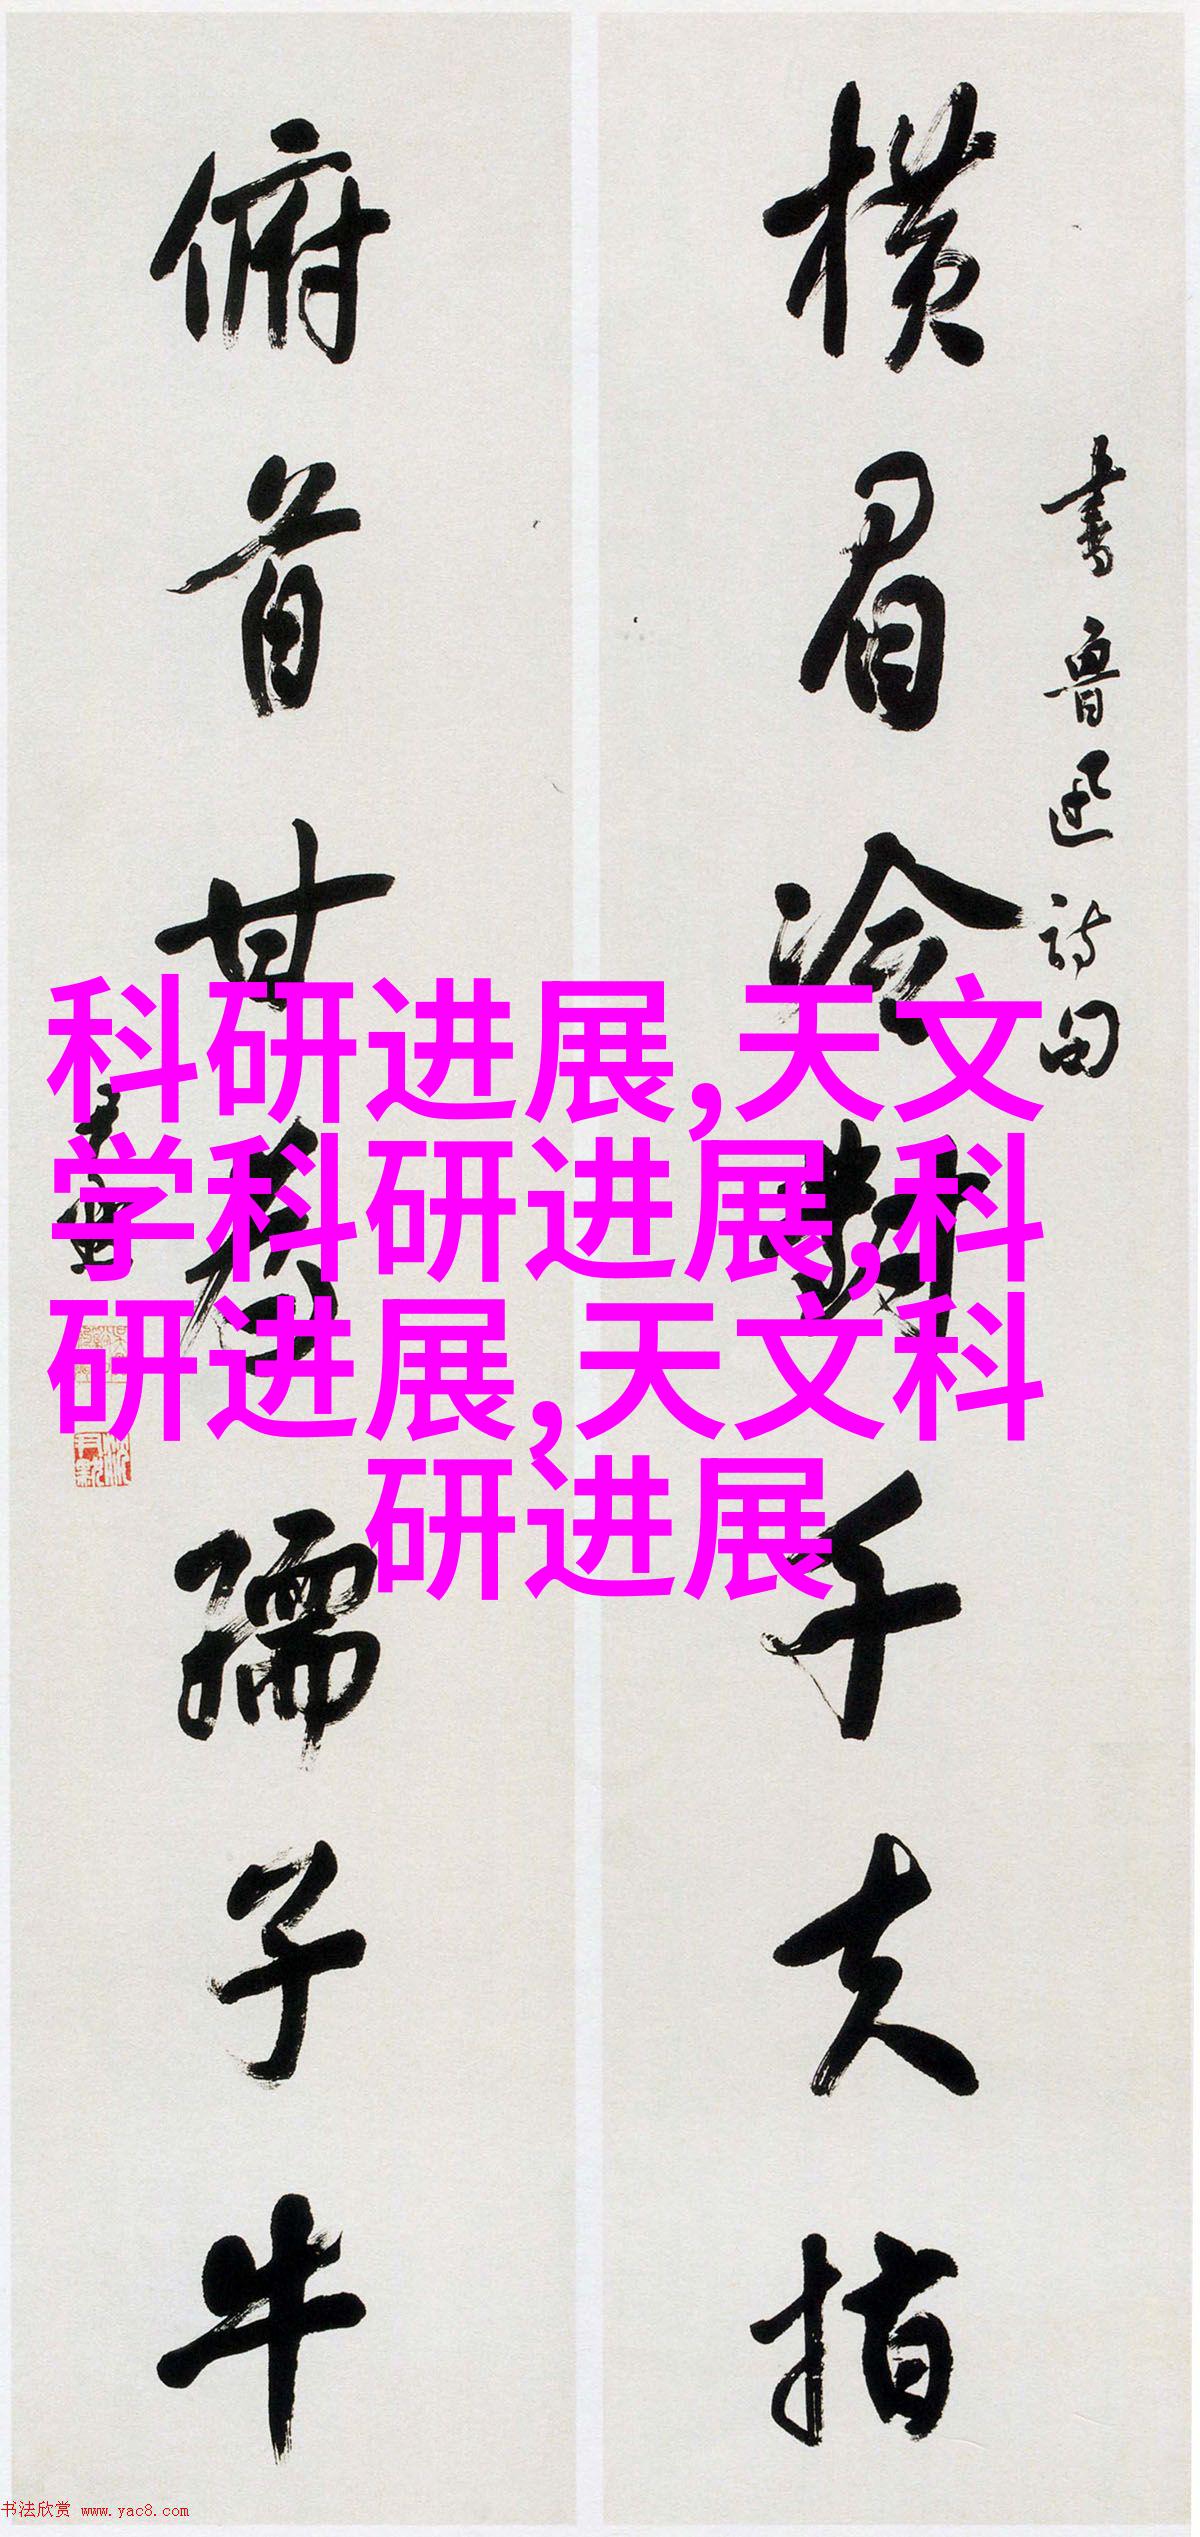 横眉冷對千夫指
書魯迅詩句
俯首甘為孺子牛
尹默
科研进展,天文
学科研进展,科
研进展,天文科
研进展
书法欣赏 www.yac8.com